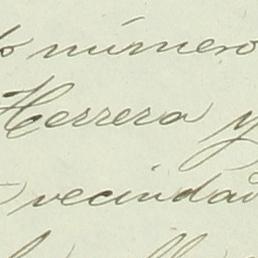 número
Herrera y
vecindad